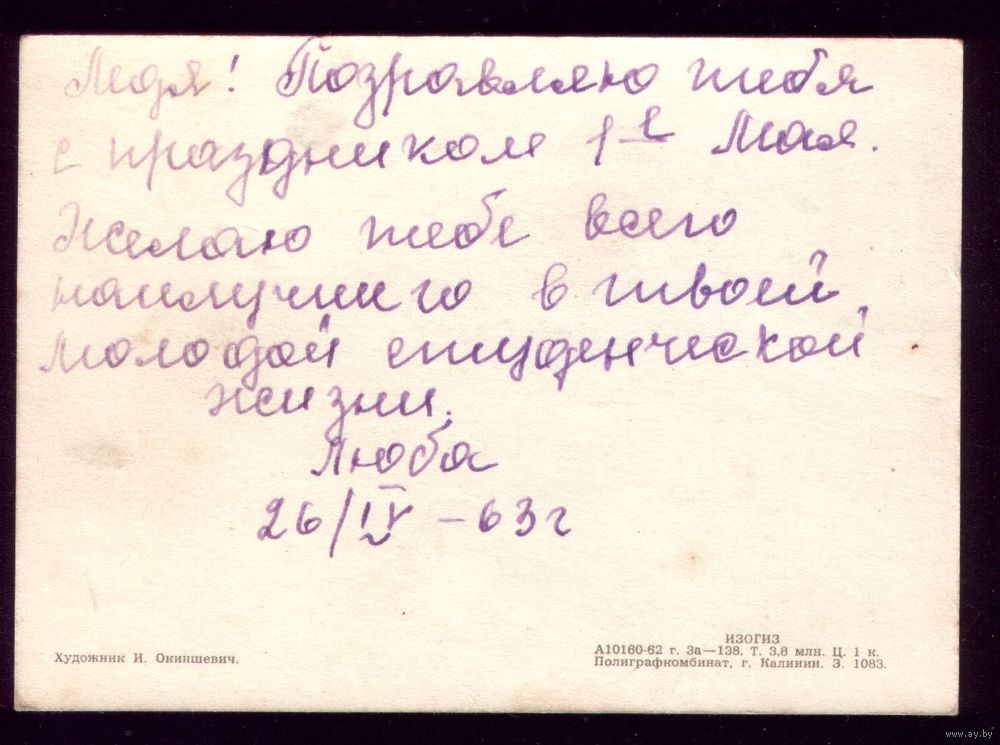 Лидя! Позравляю тебя
с праздником 1-е Мая.
Желаю тебе всего
наилучшего в твоей
молодой студенческой
жизни.
Люба
26/IV – 63 г
Художник И. Окиншевич.
ИЗОГИЗ
А10160-62 г. За—138. Т. 3,8 млн. Ц. 1 к.
Полиграфкомбинат, г. Калинин. З. 1083.
www.ay.by